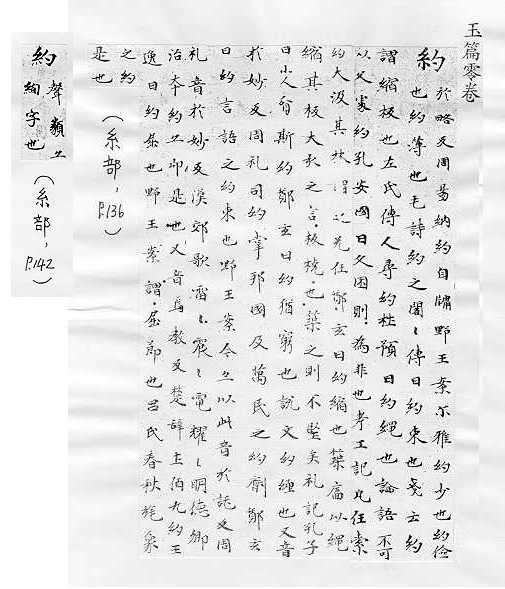 玉篇零卷
約 於略反周易納約自牖野王案尒雅約少也約儉
也約薄也毛詩約之閣〻傳曰約束也戔云約
謂縮板也左氏傳人尋約杜預曰約繩也論語不可
以久處約孔安國曰久困則為非也考工記凢任索
約大汲其板謂之无任鄭玄曰約縮也築牆以繩
縮其板大則之言板橈也築之則不堅矣礼記孔子
曰小人貧斯約鄭玄曰約猶窮也說文約纏也又音
於妙反周礼司約掌邦國及萬民之約劑鄭玄
曰約言語之約束也野王案今亦以此音於詑反周
礼音於妙反漢郊歌雷〻震〻電耀〻明德鄉
治本約亦即是也又音烏教反楚辭土伯九約王
逸曰約屈也野王案謂屈節也呂氏春秋旄象
之約
是也
(糸部, P.136)
約 聲類亦
絢字也
(糸部, P.142)